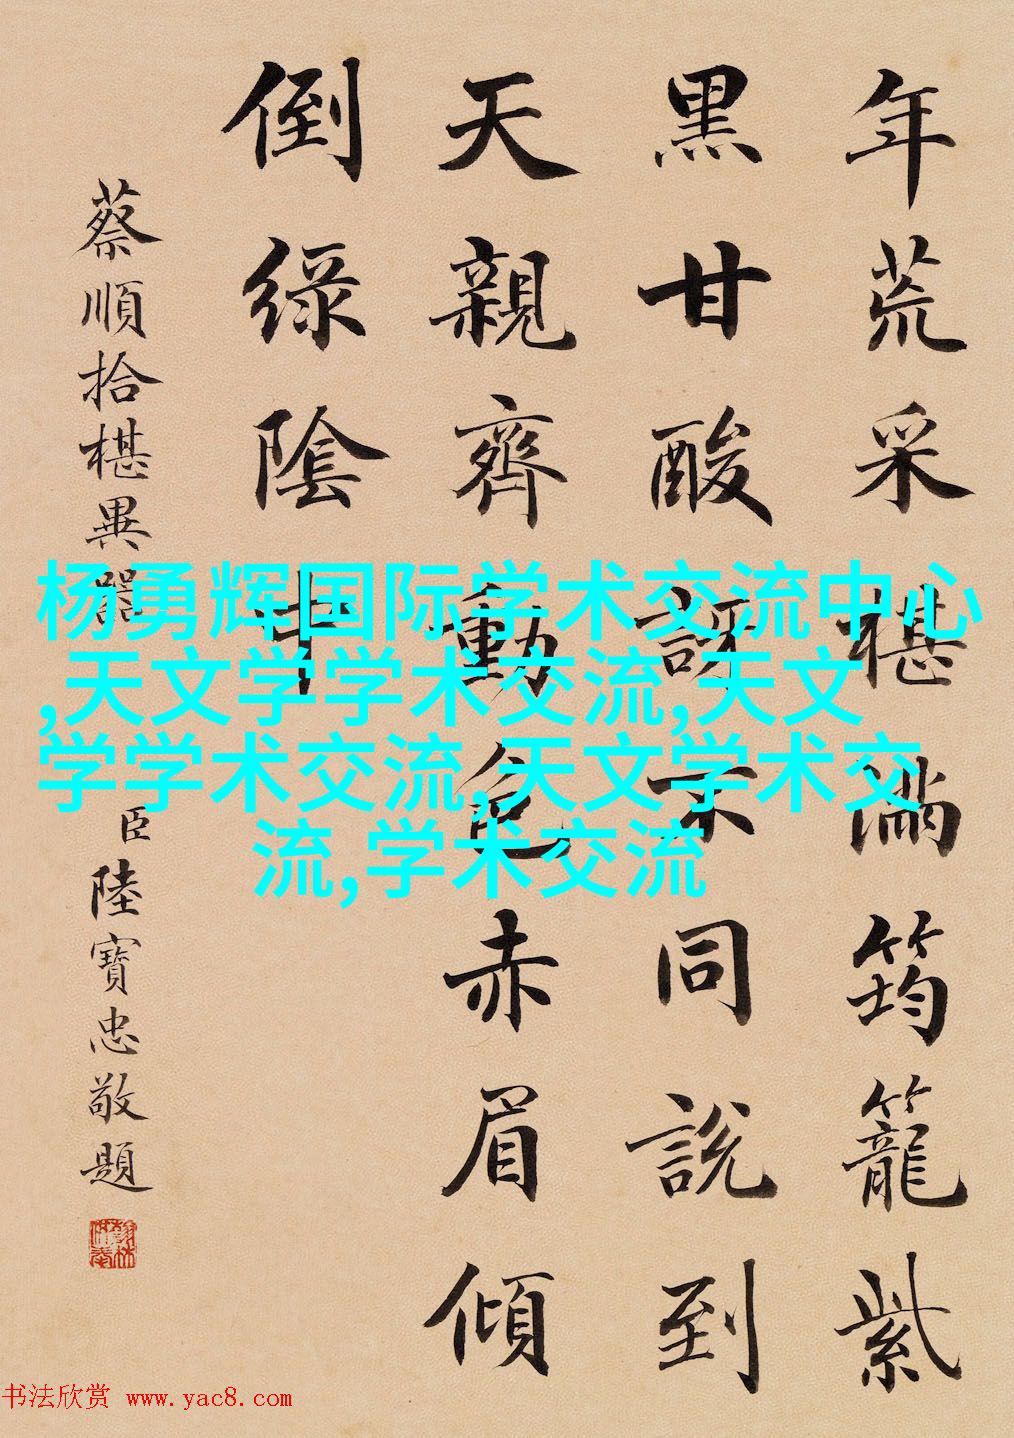 年荒采椹滿筠籠紫
黑甘酸訝不同說到
天親齊動色赤眉傾
倒綠陰中
蔡順拾椹異器
臣陸寶忠敬題
杨勇辉国际学术交流中心
,天文学学术交流,天文
学学术交流,天文学术交
流,学术交流
书法欣赏 www.yac8.com